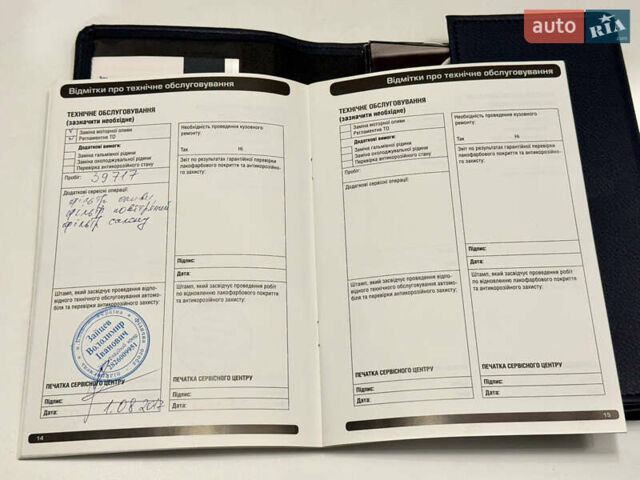 auto RIA
.com
Відмітки про технічне обслуговування
ТЕХНІЧНЕ ОБСЛУГОВУВАННЯ
(зазначити необхідне)
Заміна моторної оливи
Регламентне ТО
Додаткові вимоги:
Заміна гальмівної рідини
Заміна охолоджувальної рідини
Перевірка антикорозійного стану
Пробіг: 39717
Додаткові сервісні операції:
фільтр оливи
фільтр повітряний
фільтр салону
Штамп, який засвідчує проведення відпо-
відного технічного обслуговування автомо-
біля та перевірки антикорозійного захисту:
Зайцев
Володимир
Іванович
ПЕЧАТКА СЕРВІСНОГО ЦЕНТРУ
Підпис:
Дата: 1.08.2017
14
Необхідність проведення кузовного
ремонту:
Так Ні
Звіт по результатах гарантійної перевірки
лакофарбового покриття та антикорозійно-
го захисту:
Підпис:
Дата:
Штамп, який засвідчує проведення робіт
по відновленню лакофарбового покриття
та антикорозійного захисту:
Підпис:
Дата:
Відмітки про технічне обслуговування
ТЕХНІЧНЕ ОБСЛУГОВУВАННЯ
(зазначити необхідне)
Заміна моторної оливи
Регламентне ТО
Додаткові вимоги:
Заміна гальмівної рідини
Заміна охолоджувальної рідини
Перевірка антикорозійного стану
Пробіг:
Додаткові сервісні операції:
Штамп, який засвідчує проведення відпо-
відного технічного обслуговування автомо-
біля та перевірки антикорозійного захисту:
ПЕЧАТКА СЕРВІСНОГО ЦЕНТРУ
Підпис:
Дата:
Необхідність проведення кузовного
ремонту:
Так Ні
Звіт по результатах гарантійної перевірки
лакофарбового покриття та антикорозійно-
го захисту:
Підпис:
Дата:
Штамп, який засвідчує проведення робіт
по відновленню лакофарбового покриття
та антикорозійного захисту:
Підпис:
Дата:
15